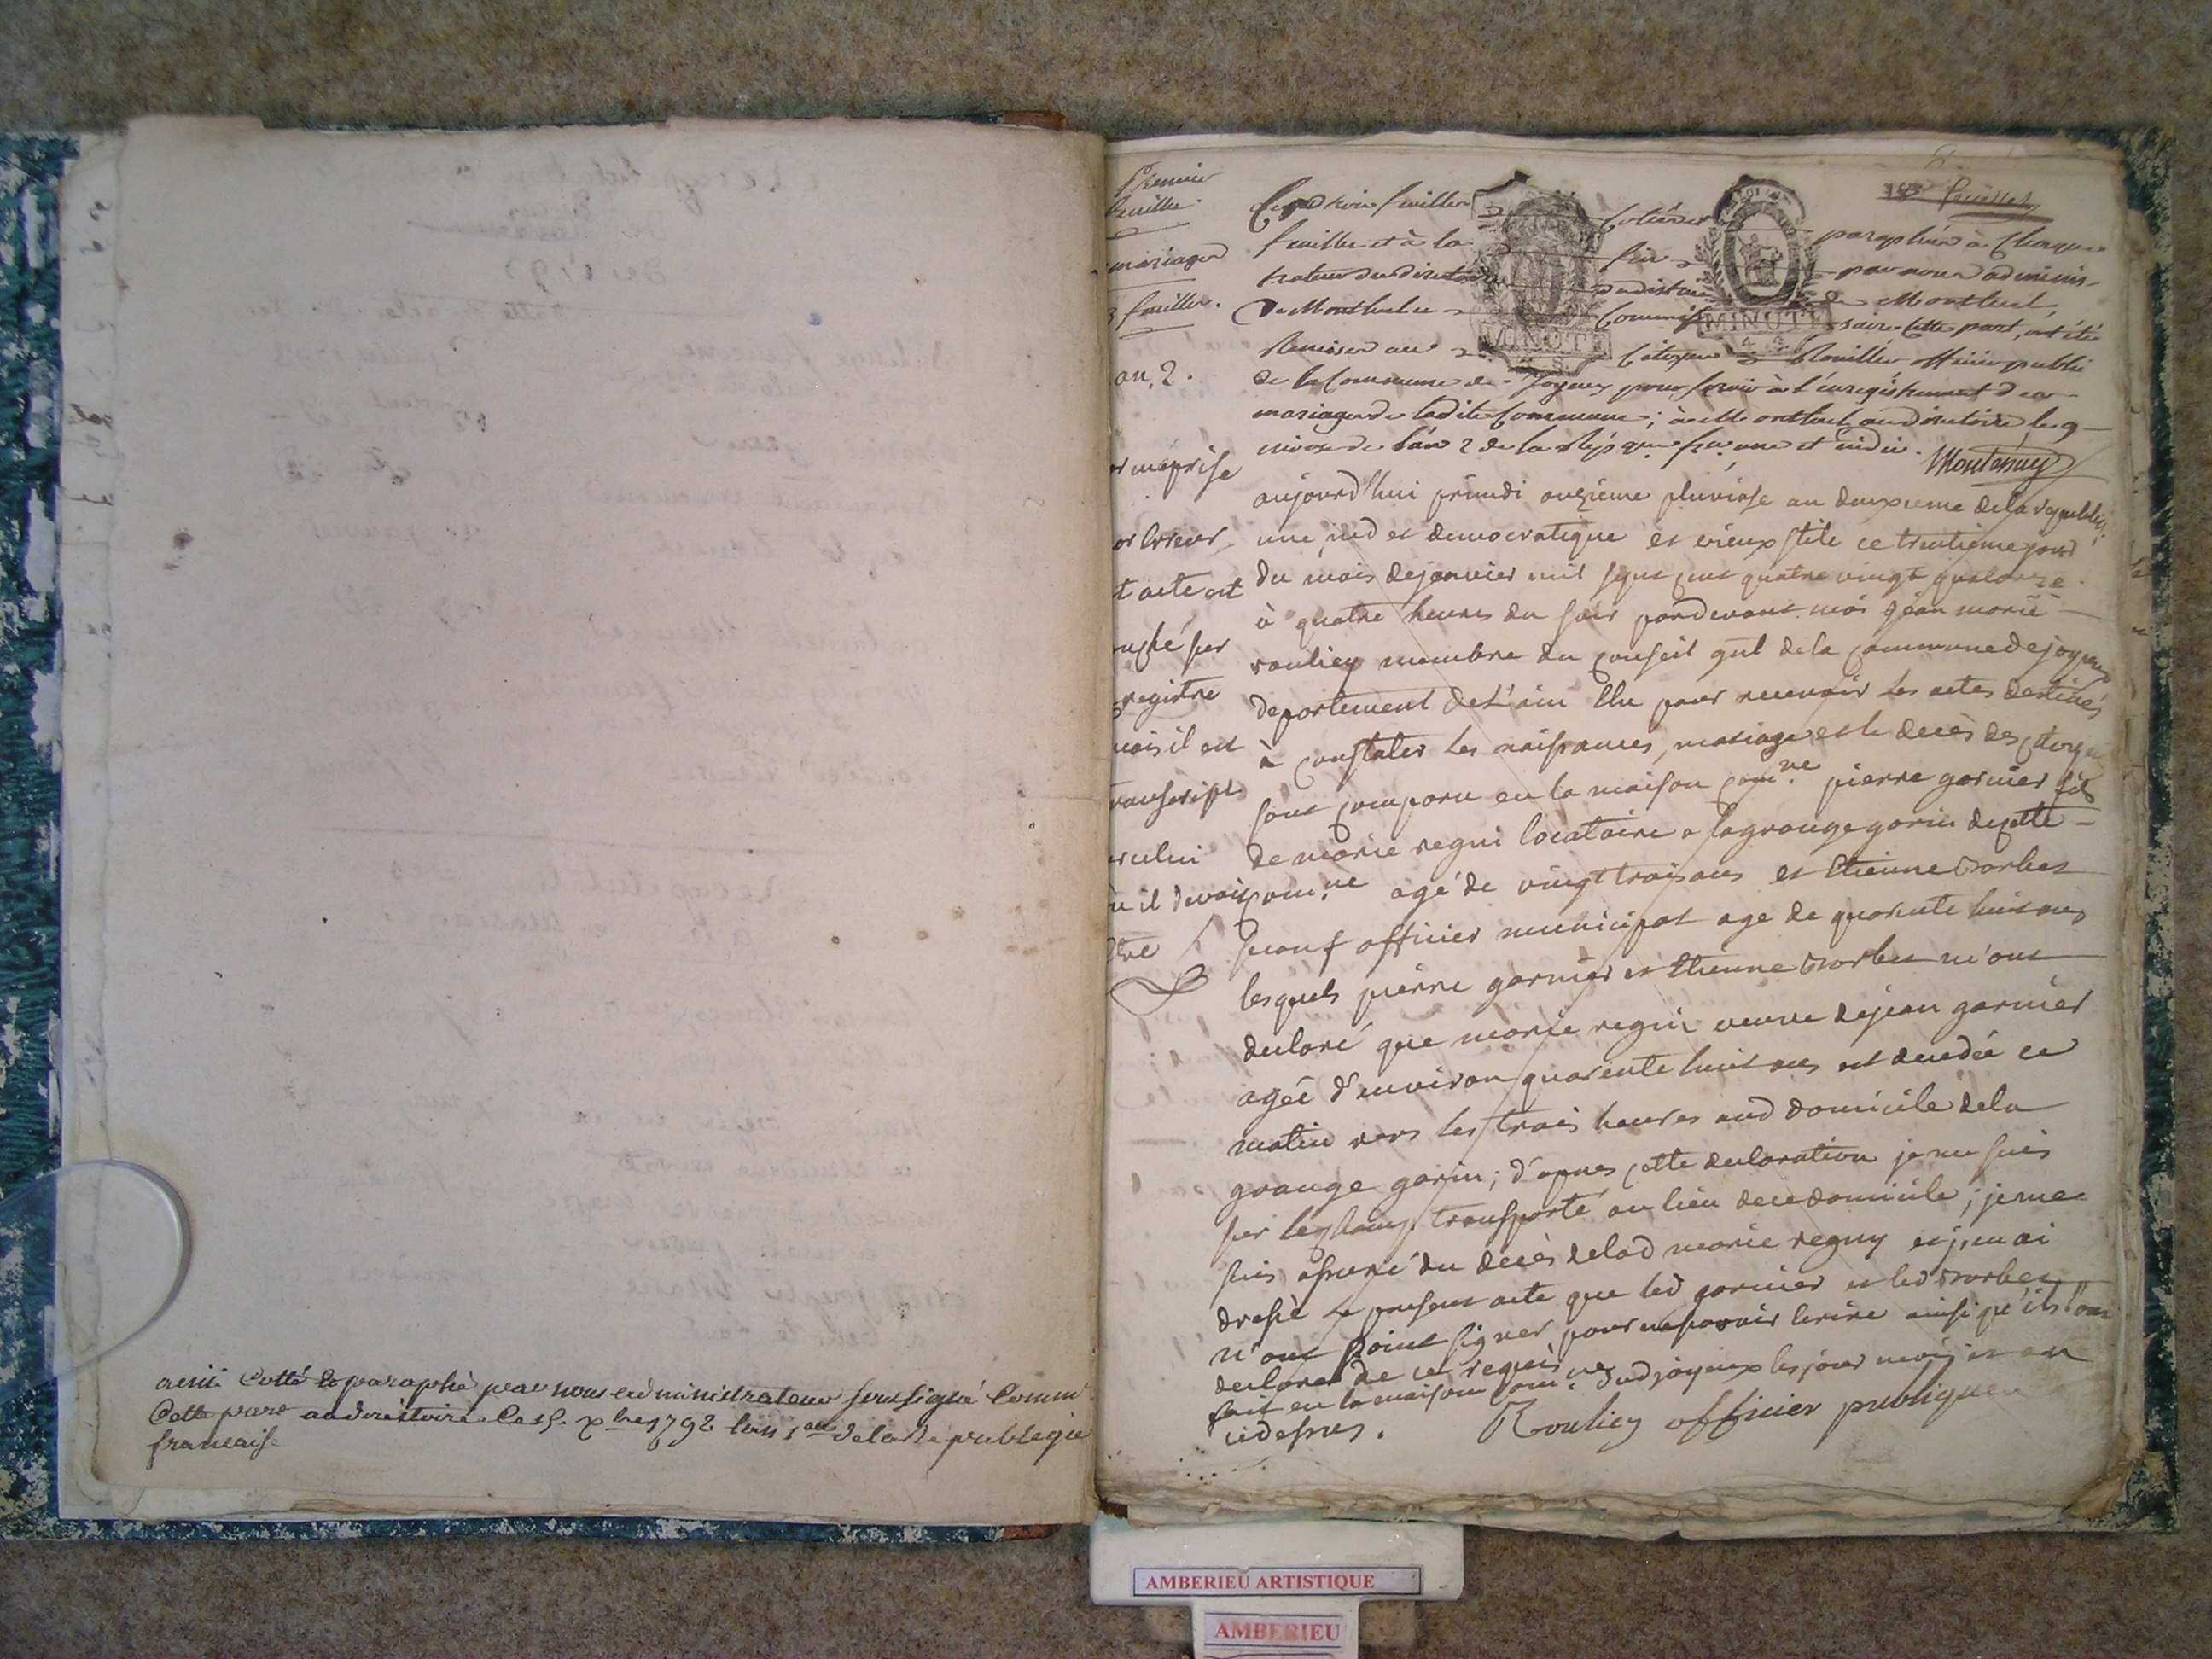 ainsi Cotté et paraphé par nous administrateur soussigné Comm
Cette part au directoire Ce 15. xbre 1792 lan 1er de la Republeque
francaise
Premier
feuillet.
mariages
3 feuilles.
an. 2.
or méprise
or Erreur
t acte est
ouché sur
registre
mais il est
transcript
sur celui
ou il devoit
Etre
1er feuillet
Les trois feuilles Cotées et paraphées à Chaque
feuille et à la fin par nous adminis-
trateur du directoire du district de Montluel,
De Montluel Commissaire Cette part, ont été
Remises au Citoyen Roullier officier public
de la Commune de Joyeux pour servir à l'enregistrement des
mariages de ladite Commune; à Montluel, au directoire le 9
nivose de l'an 2 de la Rép. que fse. une et indiv.
Montessuy
aujourd'hui primdi onzieme pluviose an deuxieme de la republiq.
une, ind et democratique et vieux stile ce trentieme jour
du mois de janvier mil sept cent quatre vingt quatorze.
à quatre heures du soir pardevant moi jean marie
rouliey membre du conseil gnl de la commune de joyeux
departement de L'ain Elu pour recevoir les actes destinés
à constater les naissances, mariage et le decès des citoyens
sont comparu en la maison comne. pierre garnier fils
de marie regni locataire a lagrange garin de cette
comne. agé de vingt trois ans et Etienne
officier municipal age de quarente huit ans
lesquels pierre garnier et Etienne m'ont
declaré que marie regni veuve de jean garnier
agée d'environ quarente huit ans est decedée ce
matin vers les trois heures aud domicile de la
grange garin; d'apres cette declaration je me suis
sur le champ transporté au lieu de ce domicile; je me
suis assuré du decès de lad marie regny et j'en ai
dressé le present acte que led garnier et led
n'ont point signer pour ne savoir Ecrire ainsi qu'ils l'ont
declarer de ce requis
fait en la maison comne. dud joyeux les jour mois et an
cidessus. Rouliey officier publique
MINUTE
MINUTE
4 S
AMBERIEU ARTISTIQUE
AMBERIEU